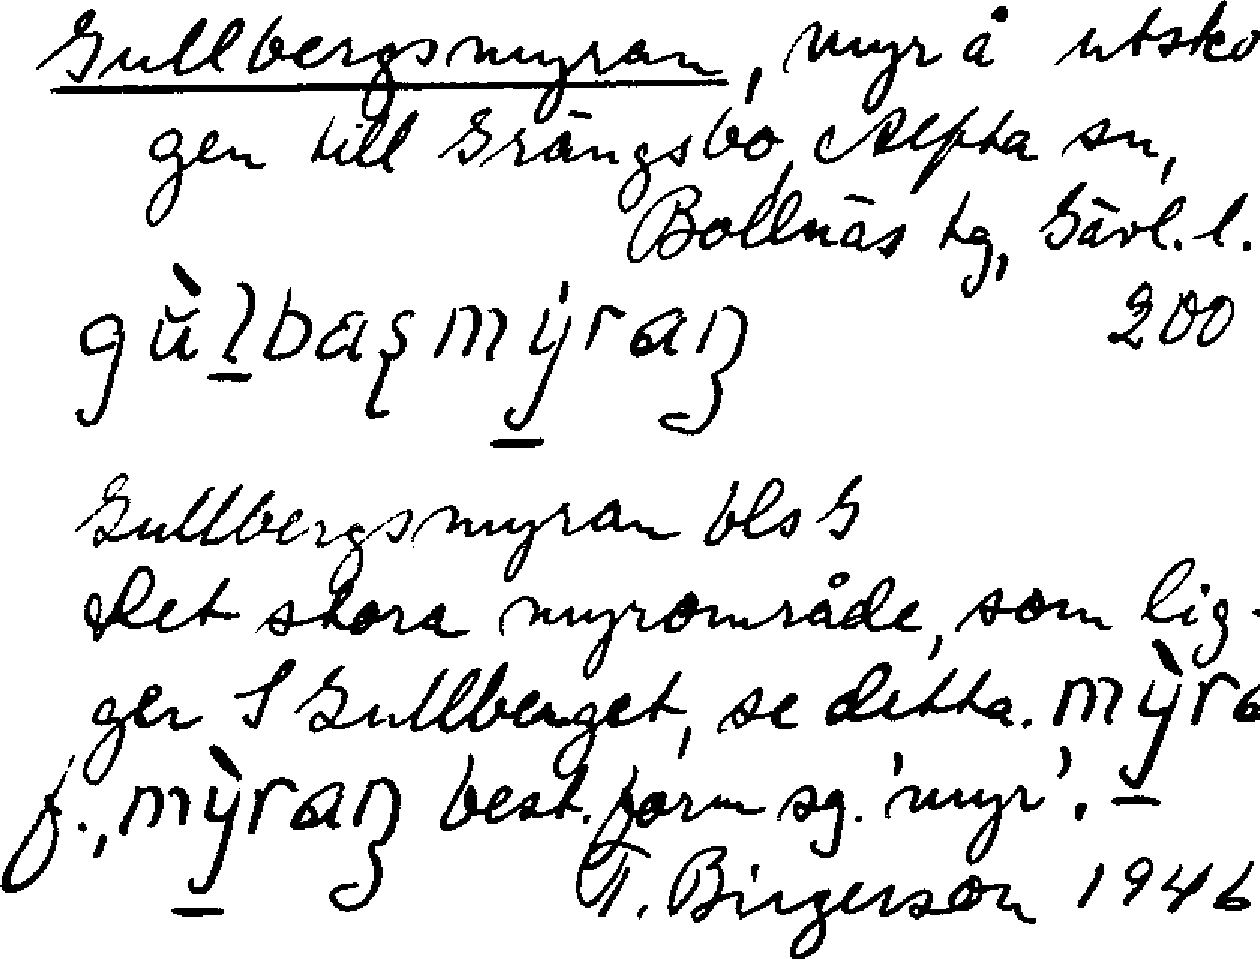 Gullbergsmyran, myr å utsko
gen till Grängsbo, Alfta sn,
Bollnäs tg, Gävl. l.
200
Gullbergsmyran bls G
Det stora myrområde, som lig-
ger S Gullberget, se detta. mỳra
f., best. form sg. 'myr'.
T. Birgerson 1946